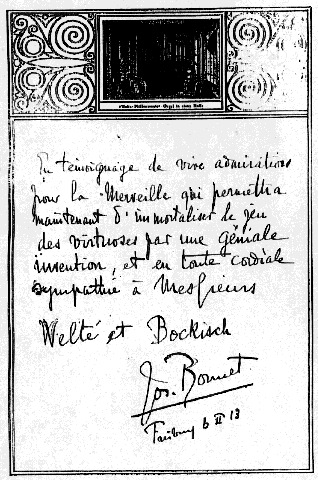 Welte-Philharmonie-Orgel in einer Halle
En témoignage de vive admiration
pour la Merveille qui permettra
maintenant d'immortaliser le jeu
des virtuoses par une géniale
invention, et en toute cordiale
sympathie à Messieurs
Welte et Bockisch
Jos. Bonnet
Freiburg 6 II 13